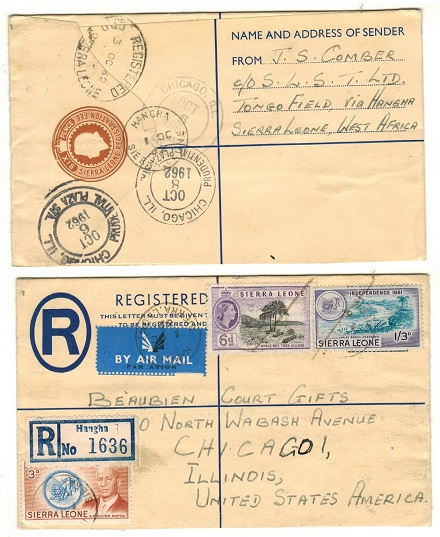 NAME AND ADDRESS OF SENDER
FROM J. S. COMBER
c/o S. L. S. T. LTD.
TONGO FIELD, VIA HANGHA
SIERRA LEONE, WEST AFRICA
REGISTERED
3 OC 62
SIERRA LEONE
CHICAGO, ILL.
OCT
HANGHA
OC
REGISTRATION FEE
SIERRA LEONE
PRUDENTIAL PLAZA STA.
OCT
8
1962
CHICAGO, ILL.
PRUDENTIAL PLAZA STA.
OCT
8
1962
CHICAGO, ILL.
REGISTERED
THIS LETTER MUST BE GIVEN
TO BE REGISTERED AND
R
BY AIR MAIL
PAR AVION
SIERRA LEONE
6d
WHALE BAY, YORK VILLAGE
INDEPENDENCE 1961
1/3D
SIERRA LEONE
BEAUBIEN COURT GIFTS
0 NORTH WABASH AVENUE
CHICAGO 1,
ILLINOIS,
UNITED STATES AMERICA.
Hangha
R No 1636
3D
SIERRA LEONE